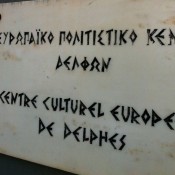 ΕΥΡΩΠΑΪΚΟ ΠΟΛΙΤΙΣΤΙΚΟ ΚΕΝ
ΔΕΛΦΩΝ
CENTRE CULTUREL EUROPE
DE DELPHES